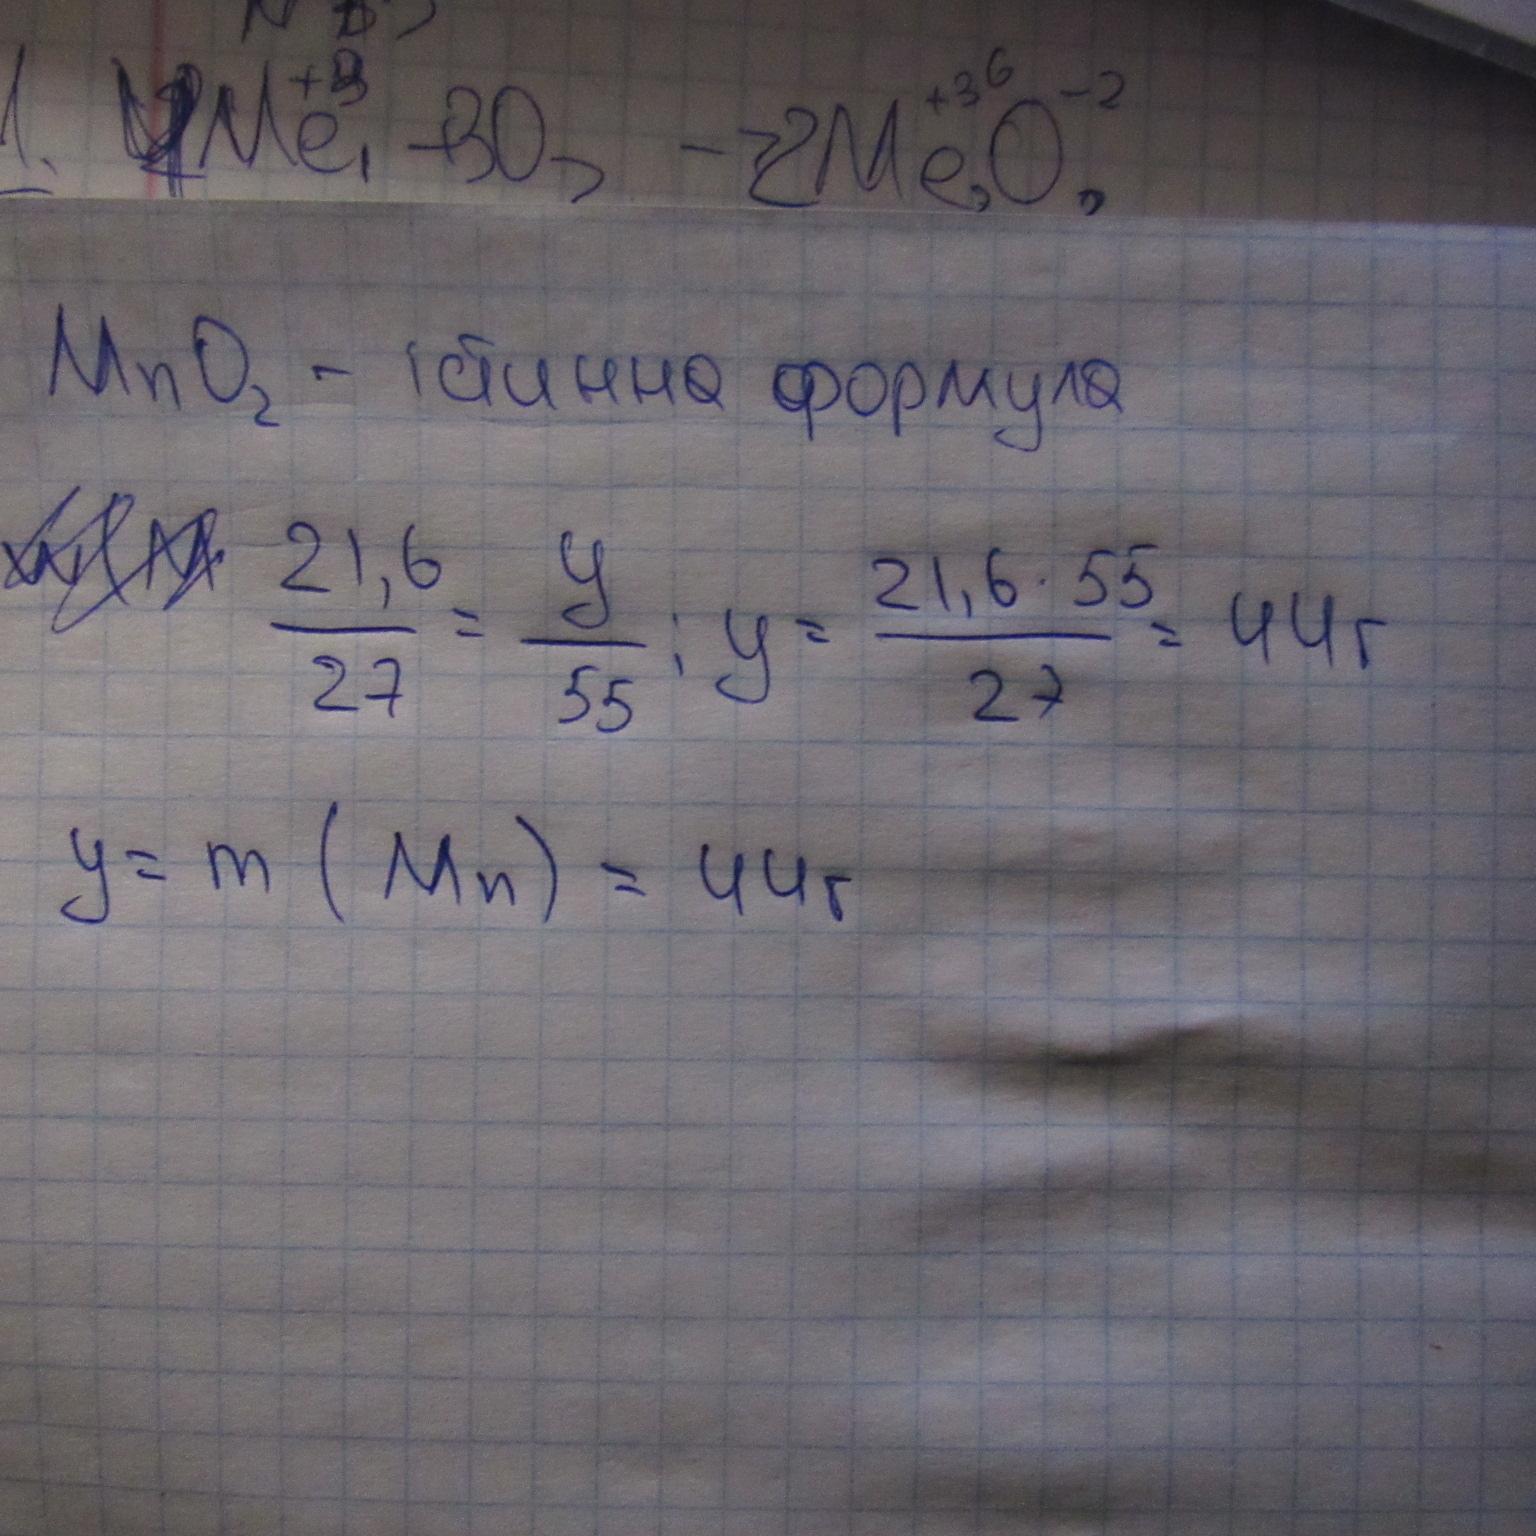 1. 4Me₁⁺³ + 3O₂ → 2Me₂⁺³ ⁶O₃⁻²
MnO₂ - істинна формула
21,6/27 = y/55 ; y = 21,6·55/27 = 44г
y = m (Mn) = 44г